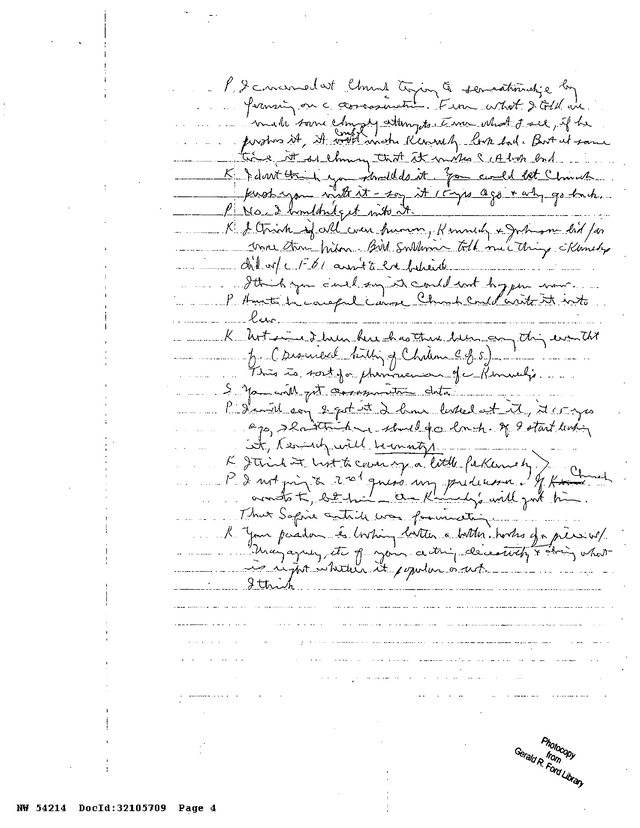 P. I concerned at Church trying to sensationalize by
focusing on c assassination. From what I told are
made some attempts. From what I see, if he
pushes it, it could make Kennedy look bad. But at same
time, it so that it makes CIA look bad.
K. I don't think you should do it. You could let Church
push you into it - say it 15 yrs ago + why go back.
P. No. I wouldn't get into it.
K. I think if all were known, Kennedy & Johnson did far
more than Nixon. Bill Sullivan told me c things c Kennedys
did w/ c FBI aren't to be believed.
I think you could say it could not happen now.
P. Have to be careful cause Church could write it into
law.
K. Not since I been here has there been anything even tht
of. (Described killing of Chilean C of S).
This is sort of a phenomenon of c Kennedys.
S. You will get assassination data
P. I will say I got it I have looked at it, it 15 yrs
ago, I don't think we should go back. If I start leaking
it, Kennedy will
K. I think it best to cover up a little for Kennedy.
P. I not going to 2nd guess my predecessor. If Church
wants to, let him - the Kennedys will get him.
That Safire article was fascinating.
K. Your position is looking better + better. of a piece w/
Mayaguez, etc of your acting decisively + doing what
is right whether it popular or not.
I think
Photocopy
from
Gerald R. Ford Library
NW 54214 DocId:32105709 Page 4